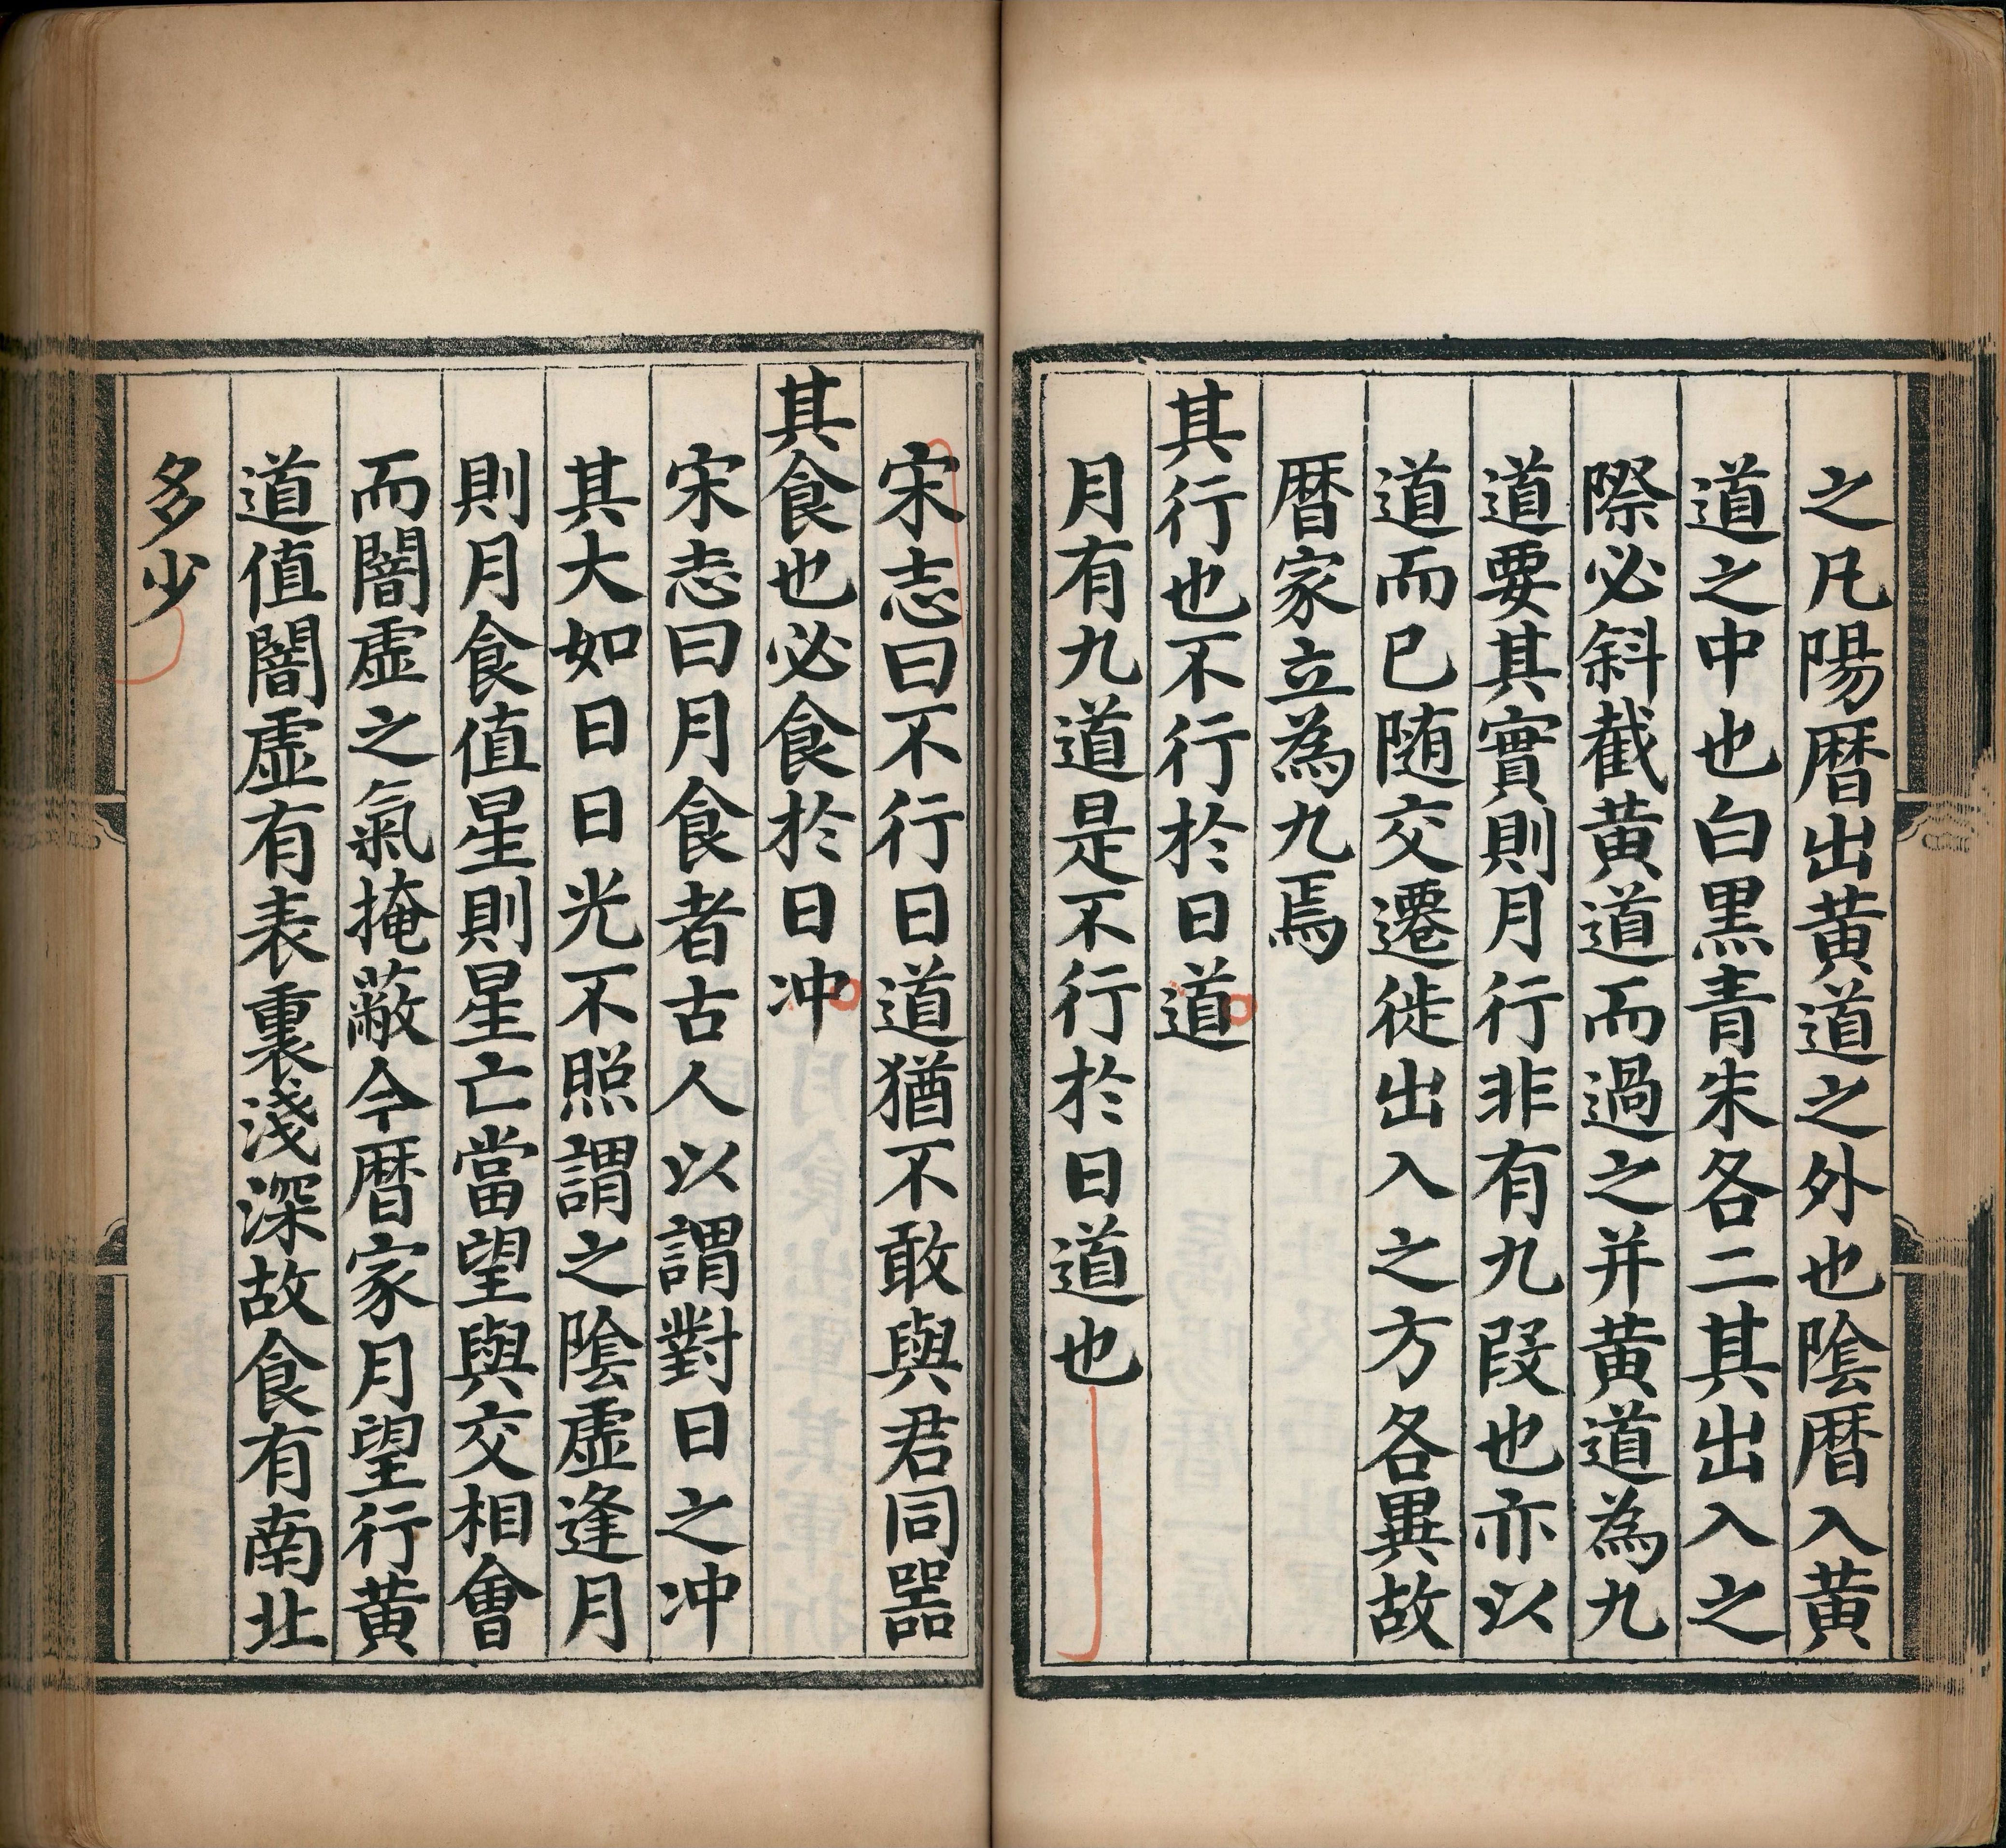 之凡陽暦出黃道之外也陰暦入黃
道之中也白黒青朱各二其出入之
際必斜截黃道而過之并黃道為九
道要其實則月行非有九段也亦以
道而已随交遷徙出入之方各異故
暦家立為九焉
其行也不行於日道
月有九道是不行於日道也
宋志曰不行日道猶不敢與君同器
其食也必食於日冲
宋志曰月食者古人以謂對日之冲
其大如日日光不照謂之陰虛逢月
則月食值星則星亡當望與交相會
而闇虛之氣掩蔽今暦家月望行黃
道值闇虛有表裏淺深故食有南北
多少